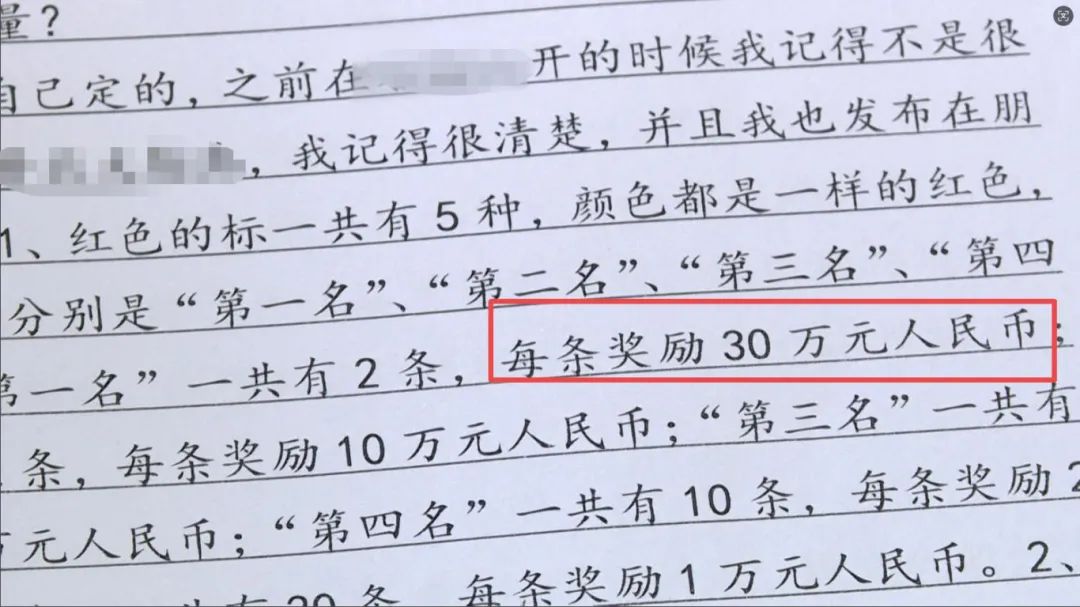 量？
自己定的，之前在开的时候我记得不是很
，我记得很清楚，并且我也发布在朋
1、红色的标一共有 5 种，颜色都是一样的红色，
分别是“第一名”、“第二名”、“第三名”、“第四
第一名”一共有 2 条，每条奖励 30 万元人民币；
条，每条奖励 10 万元人民币；“第三名”一共有
万元人民币；“第四名”一共有 10 条，每条奖励 2
共有 20 条，每条奖励 1 万元人民币。2、